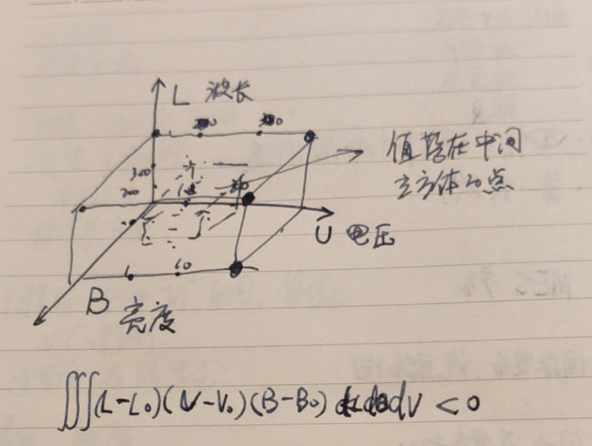 L 波长
300
200
值落在中间
立方体的点
U 电压
10
B 亮度
∭(L-L₀)(V-V₀)(B-B₀) dLdBdV < 0